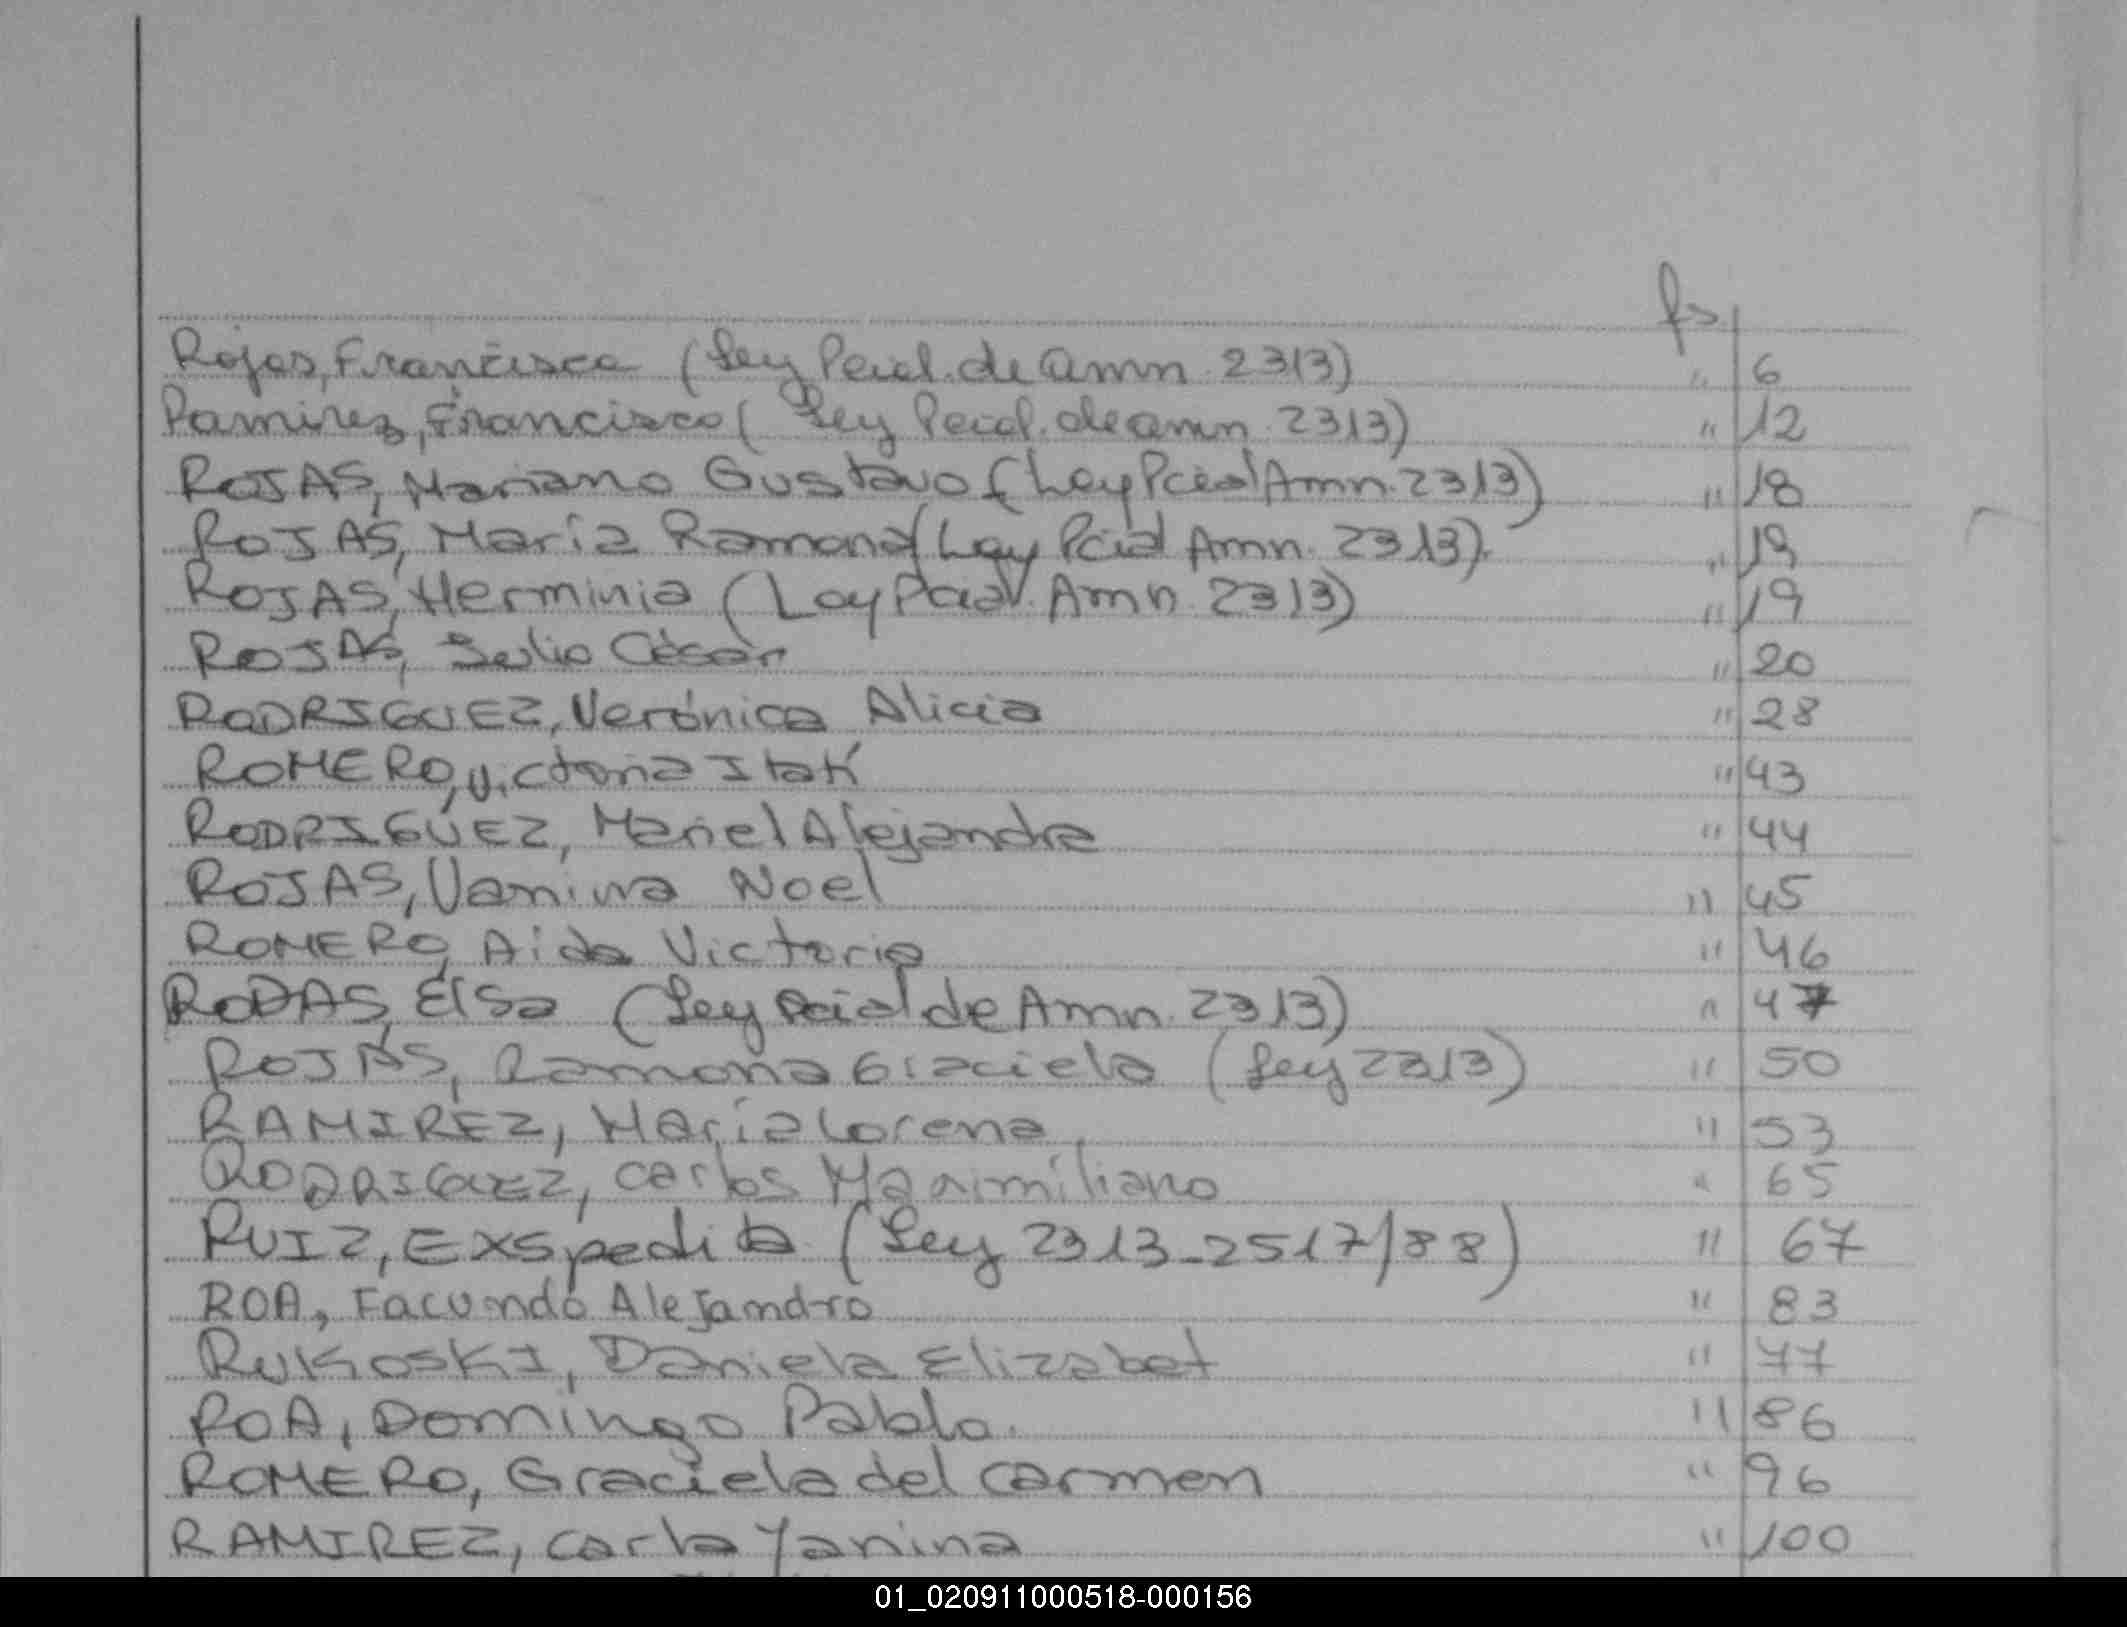 fs.
Rojas, Francisca (Ley Pcial. de amn. 2313) " 6
Ramirez, Francisco (Ley Pcial. de amn. 2313) " 12
ROJAS, Mariano Gustavo (Ley Pcial Amn. 2313) " 18
ROJAS, María Ramona (Ley Pcial Amn. 2313). " 19
ROJAS, Herminia (Ley Pcial. Amn. 2313) " 19
ROJAS, Julio César " 20
RODRIGUEZ, Verónica Alicia " 28
ROMERO, Victoria Itatí " 43
RODRIGUEZ, Mariel Alejandra " 44
ROJAS, Vanina Noel " 45
ROMERO, Aida Victoria " 46
RODAS, Elsa (Ley Pcial de Amn. 2313) " 47
ROJAS, Ramona Graciela (Ley 2313) " 50
RAMIREZ, María Lorena " 53
RODRIGUEZ, Carlos Maximiliano " 65
RUIZ, Exspedita (Ley 2313-2517/88) " 67
ROA, Facundo Alejandro " 83
RuKosKI, Daniela Elizabet " 77
ROA, Domingo Pablo. " 86
ROMERO, Graciela del Carmen " 96
RAMIREZ, Carla Yanina " 100
01_020911000518-000156